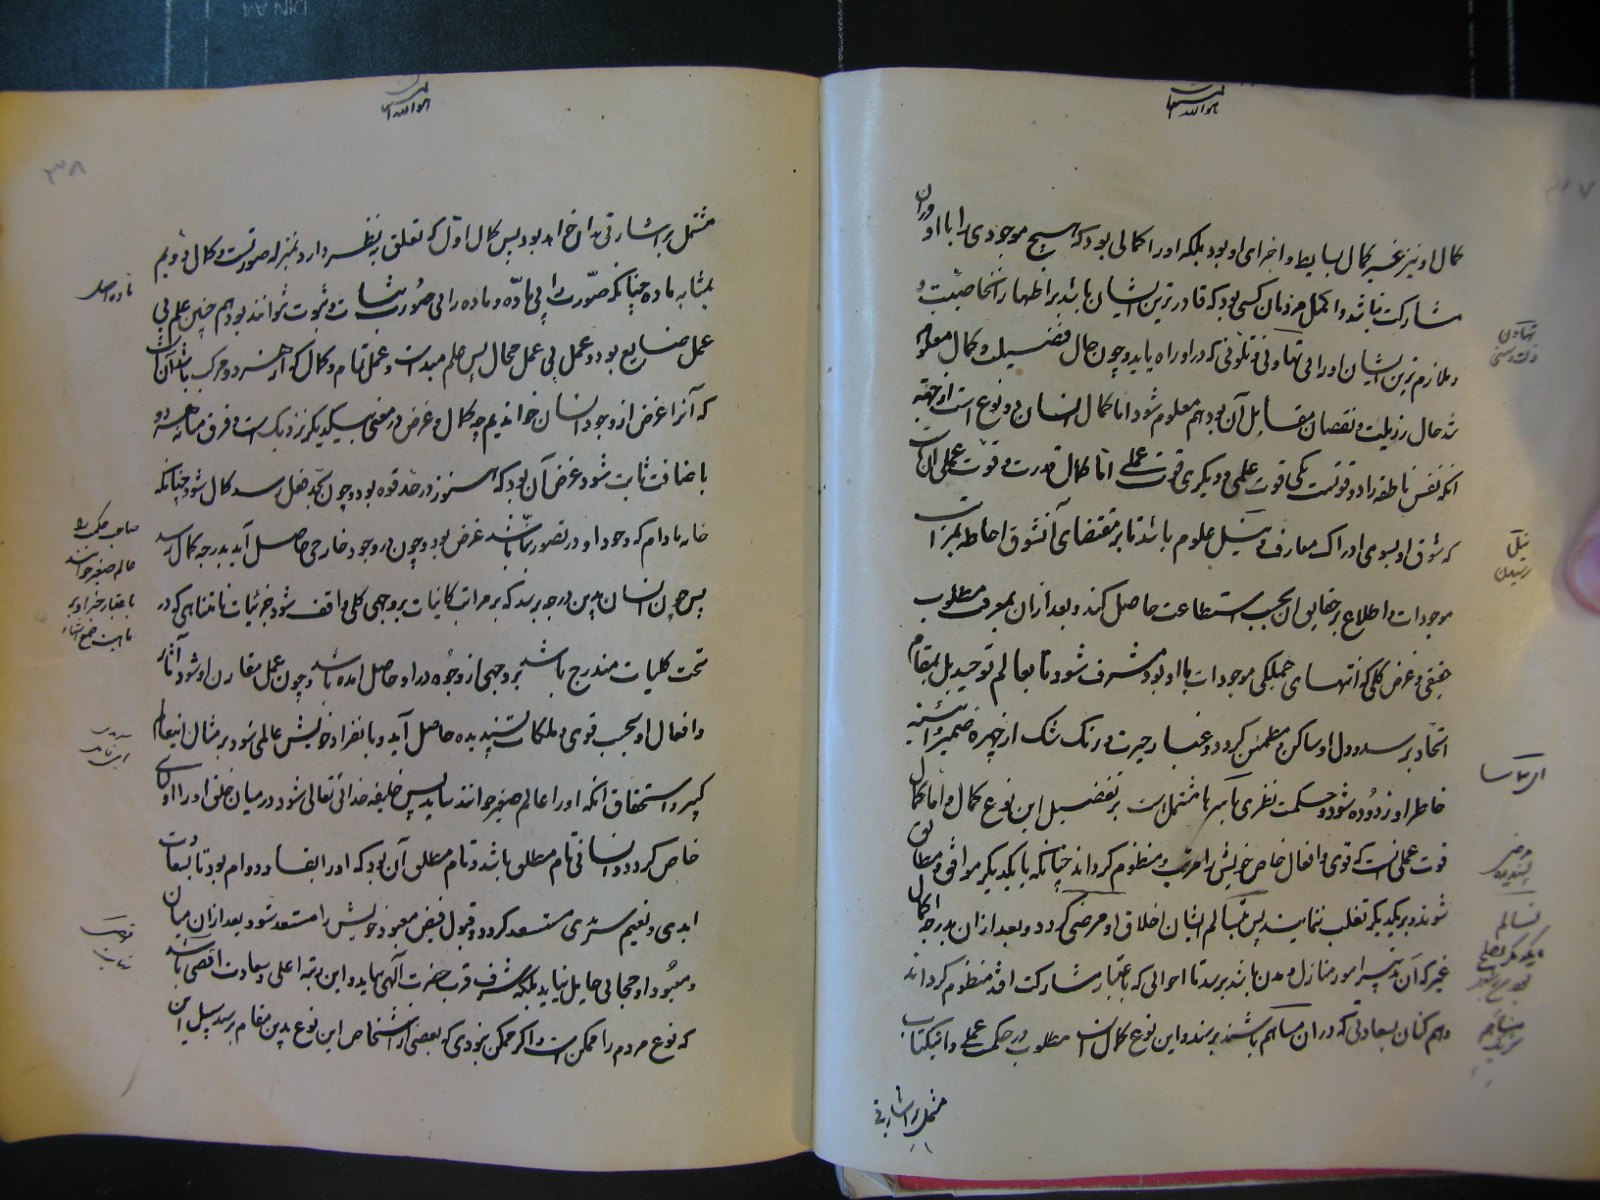 هوالله
کمال او نیز غیر کمال بسایط و اجزای او بود بلکه او را کمالی بود که هیچ موجودی را با او دران
مشارکت نباشد و اکمل مردمان کسی بود که قادرترین ایشان باشد بر اظهار آن خاصیت و
و ملازم ترین ایشان او را بی تهاونی و تلونی که در او راه یابد و چون حال فضیلت و کمال معلوم
شد حال رذیلت و نقصان مقابل آن بود هم معلوم شود اما کمال انسان دو نوع است از جهة
آنکه نفس ناطقه را دو قوتست یکی قوت علمی و دیگری قوت عملی اما کمال قوت علمی آن
که شوق او بسوی ادراک معارف و نیل علوم باشد تا بر مقتضای آن شوق احاطه بمراتب
موجودات و اطلاع بر حقایق آن بحسب استطاعت حاصل کند و بعد ازان بمعرفت مطلوب
حقیقی و غرض کلی که انتهای جملگی موجودات با او بود مشرف شود تا بعالم توحید بل بمقام
اتحاد برسد و دل او ساکن و مطمئن گردد و غبار حیرت و زنگ شک از چهره ضمیر و آئینه
خاطر او زدوده شود و حکمت نظری باسرها مشتمل است بر تفصیل این نوع کمال و اما کمال
قوت عملی آنست که قوی و افعال خاص خویش را مرتب و منظوم گرداند چنانکه با یکدیگر موافق و مطابق
شوند و بر یکدیگر تغلب ننمایند پس بتسالم ایشان اخلاق او مرضی گردد و بعد ازان بدرجه اکمال
غیر که آن تدبیر امور منازل و مدن باشد برسد تا احوالی که باعتبار مشارکت افتد منظوم گرداند
و همکنان بسعادتی که در آن مساهم باشند برسند و این نوع کمال است مطلوب در حکمت عملی و این کتاب
مشتمل بر اشارتی
تهاون
سستی
نیل
رسیدن
مرضی
پسندیده
تسالم
هوالله
۳۸
مشتمل بر اشارتی بدان خواهد بود پس کمال اول که تعلق بنظر دارد بمنزله صورتست و کمال دویم
بمثابه ماده چنانکه صورت را بی ماده و ماده را بی صورت ثبات و ثبوت نتواند بود هم چنین علم بی
عمل ضایع بود و عمل بی علم محال پس علم مبداست و عمل تمام و کمال که از هر دو مرکب باشد آنست
که آنرا غرض از وجود انسان خواندیم چه کمال و غرض در معنی بیکدیگر نزدیک است و فرق میان هر دو
باضافت ثابت شود غرض آن بود که هنوز در حد قوه بود و چون بحد فعل رسد کمال شود چنانکه
خانه مادام که وجود او در تصور بنا باشد غرض بود و چون در وجود خارجی حاصل آید بدرجه کمال رسد
پس چون انسان بدین درجه برسد که بر مراتب کاینات بر وجهی کلی واقف شود جزئیات نامتناهی که در
تحت کلیات مندرج باشد بر وجهی از وجوه در او حاصل آمده باشد و چون عمل مقارن او شود تا آثار
و افعال او بحسب قوی و ملکات پسندیده حاصل آید و بانفراد خویش عالمی شود بر مثال این عالم
کبیر و استحقاق آنکه او را عالم صغیر خوانند بیابد پس خلیفه خدای تعالی شود در میان خلق او و از اولیای
خاص گردد و انسانی تام مطلق باشد و تام مطلق آن بود که او را بقا و دوام بود تا بسعادت
ابدی و نعیم سرمدی مستعد گردد و قبول فیض معبود خویش را مستعد شود و بعد ازان میان او
و معبود او حجابی حایل نیاید بلکه شرف قرب حضرت الهی بیابد و این رتبه اعلی و سعادت اقصی باشد
که نوع مردم را ممکن است و اگر ممکن نبودی که بعضی از اشخاص این نوع بدین مقام برسد سبیل این
ماده اصل
عالم صغیر خوانند
باعتبار